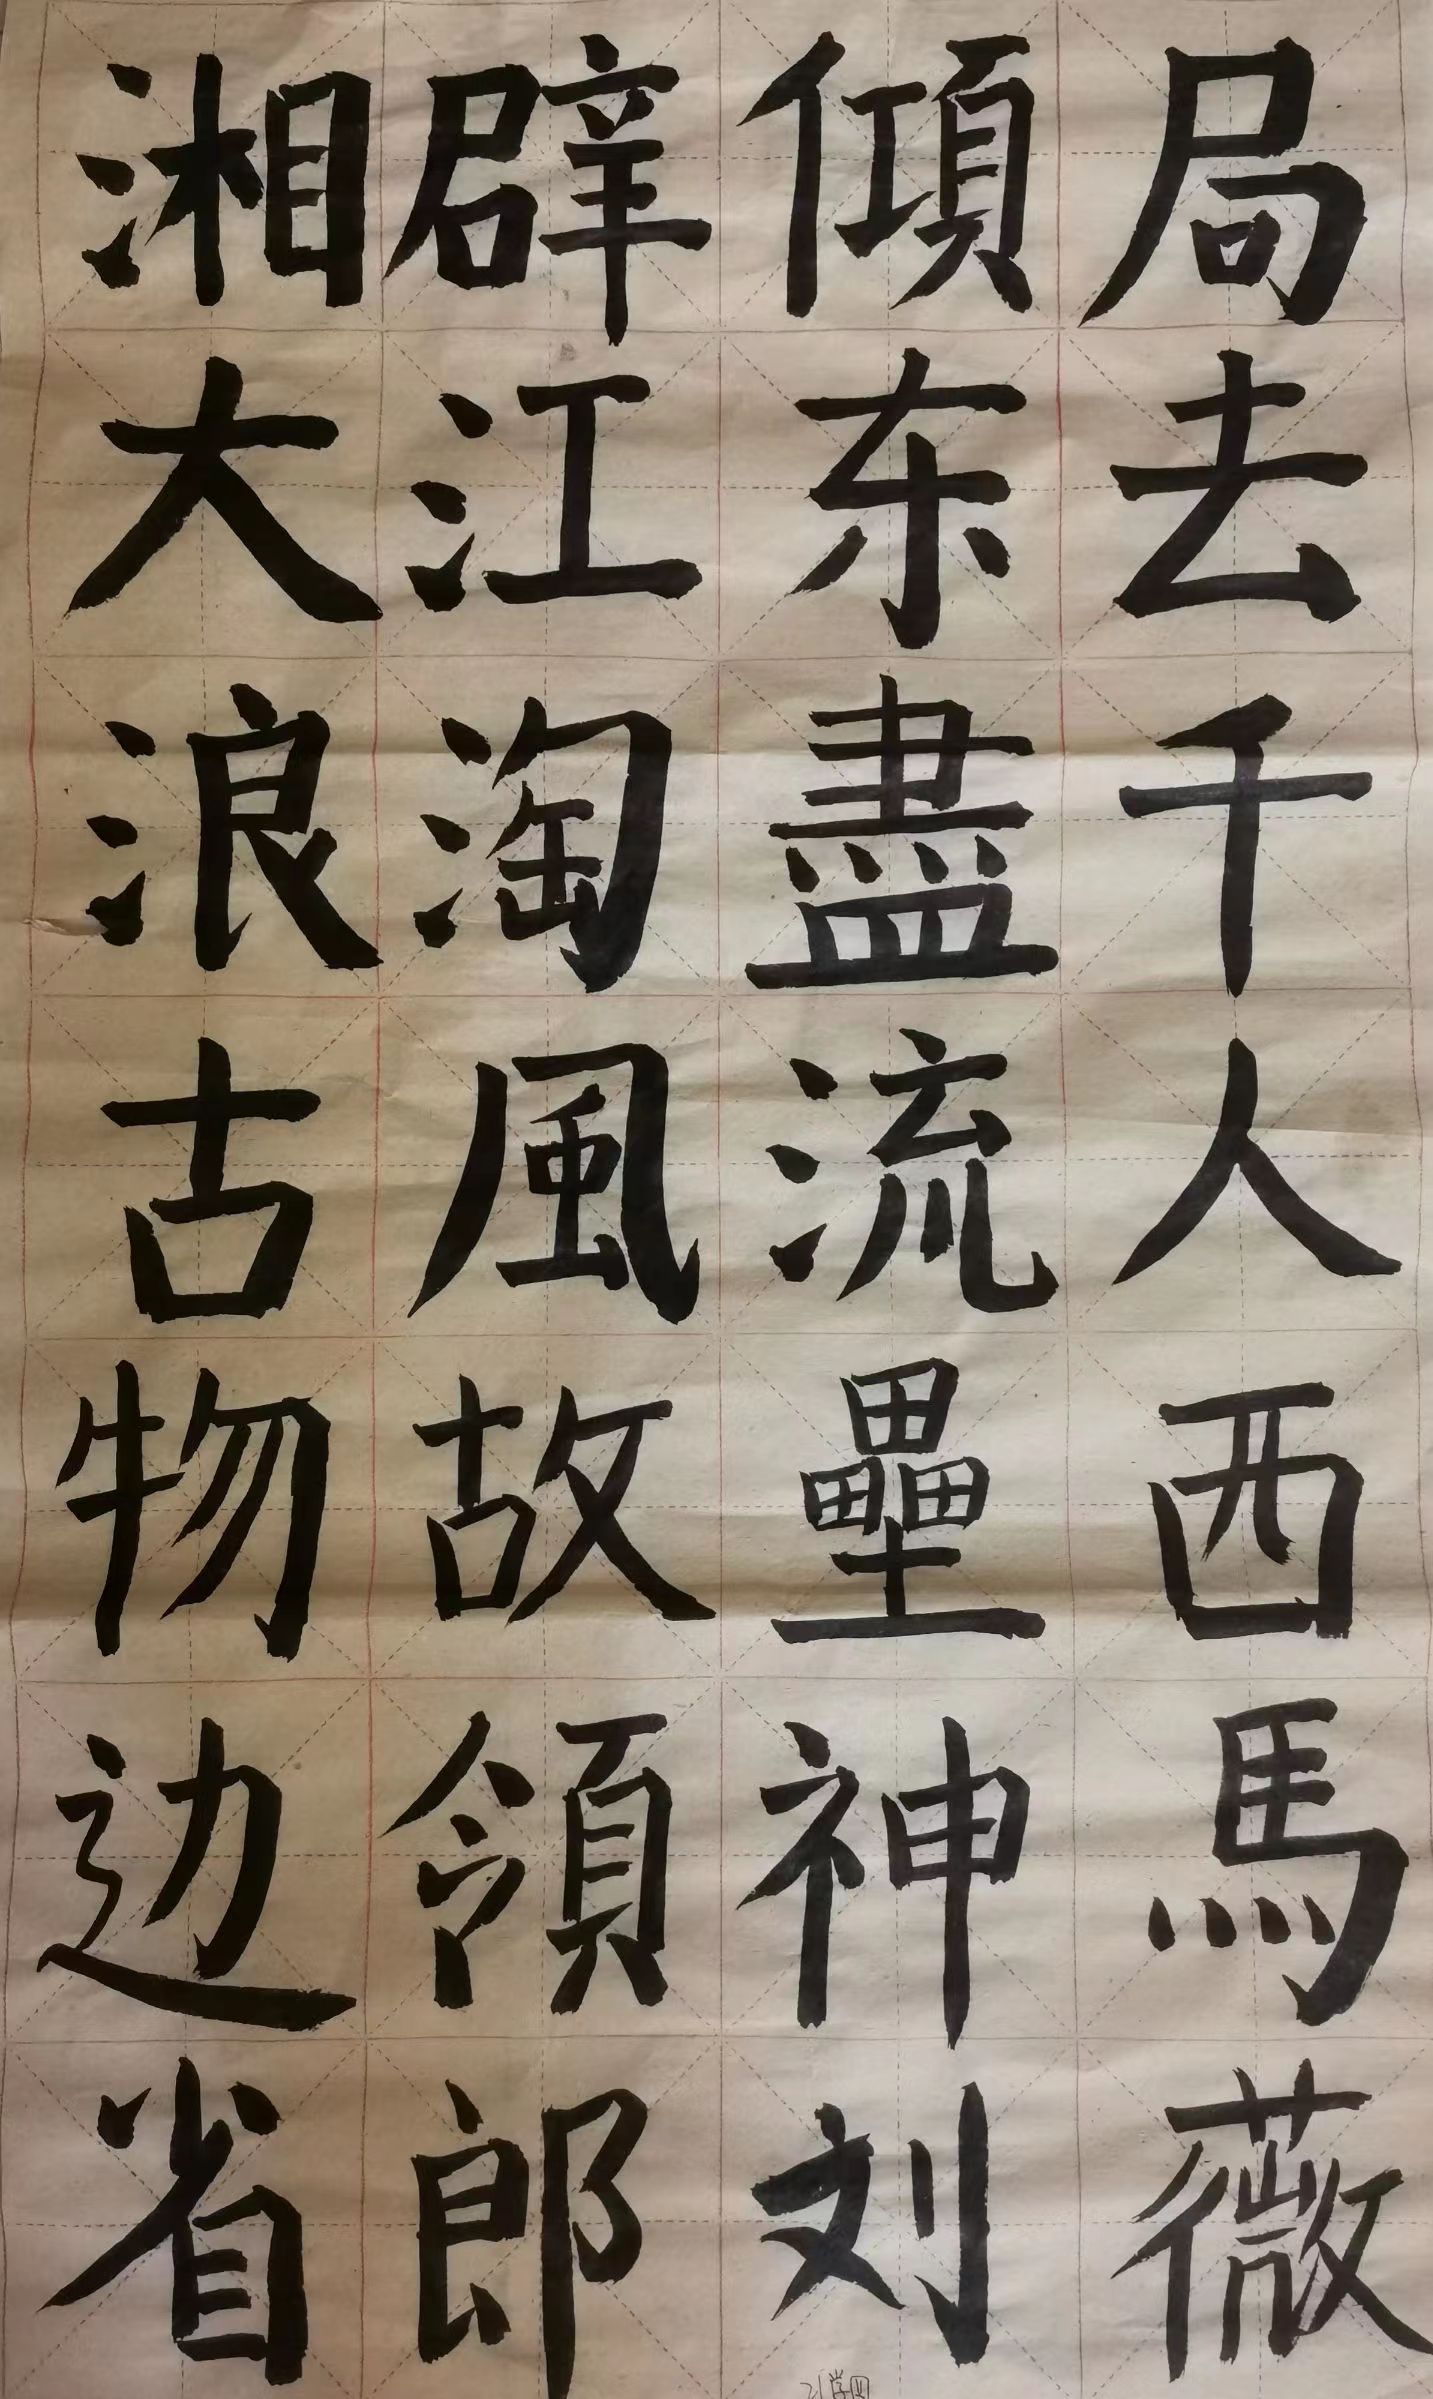 湘辟傾局
大江东去
浪淘盡千
古風流人
物故壘西
边領神馬
省郎刘薇